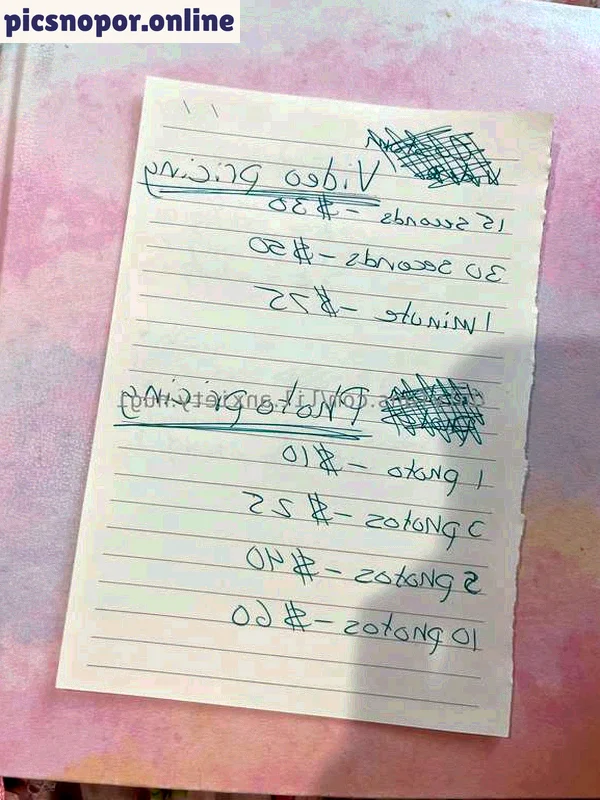 picsnopor.online
Video pricing
15 seconds - $30
30 seconds - $50
1 minute - $75
Photo pricing
1 photo - $10
3 photos - $25
5 photos - $40
10 photos - $60